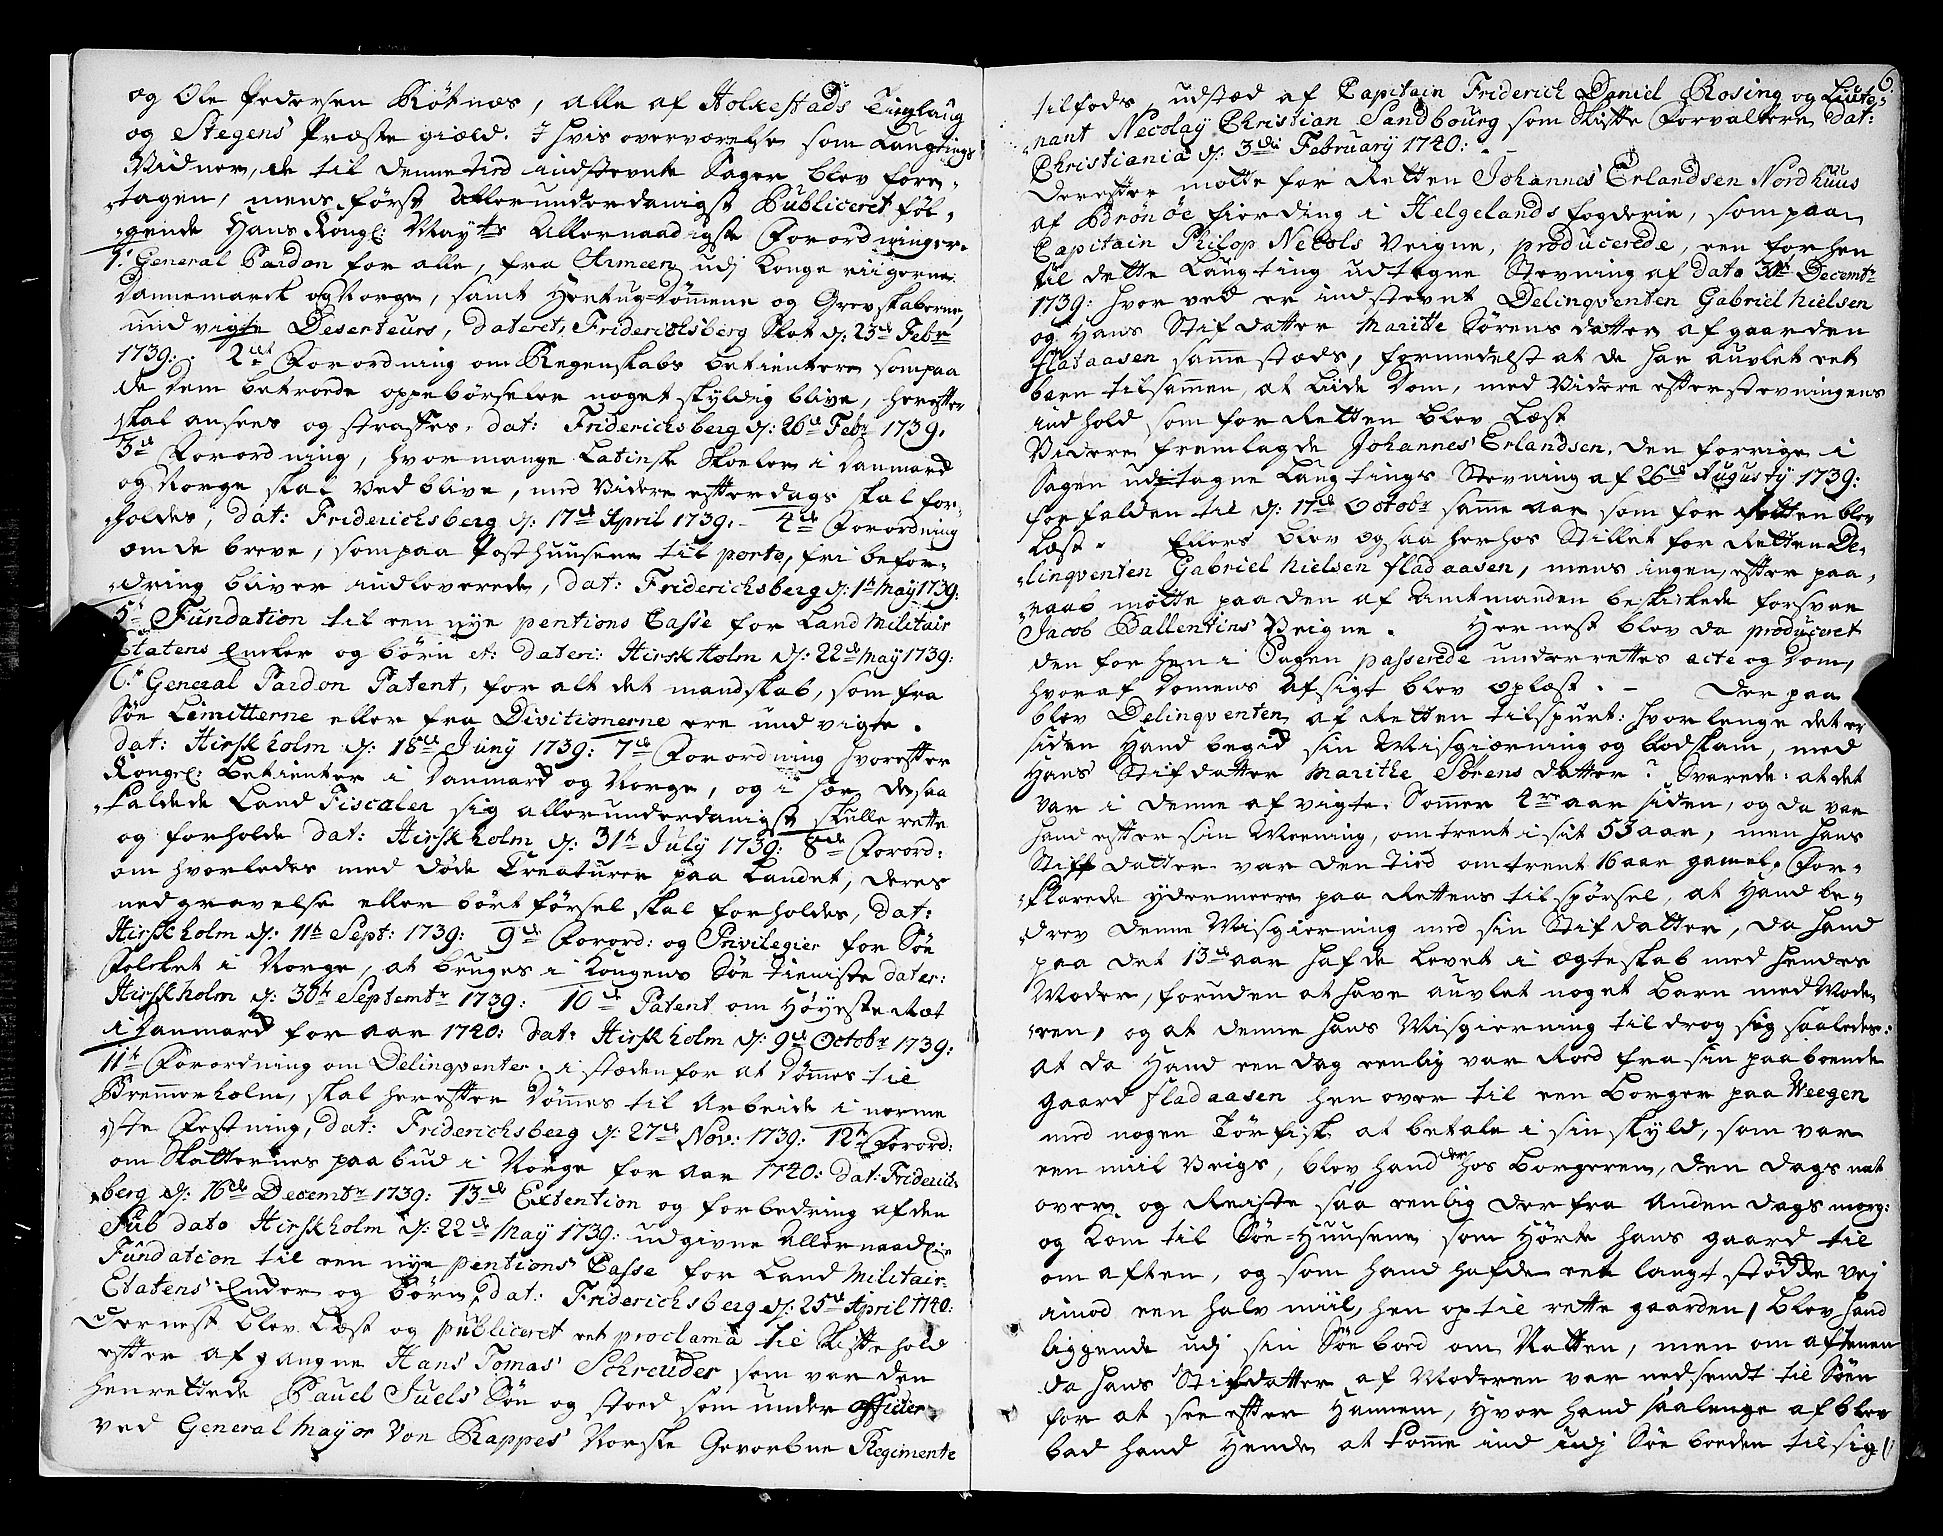 og Ole Pedersen Rötnæs, alle af Holkestads Tinglaug
og Stegens Præste giæld. I hvis overværelse som Laugtings
Vidner, de til denne tid indstevnte Sager blev fore-
tagen, mens først allerunderdanigst Publiceret föl-
gende Hans Kongl: Mayts Allernaadigste Forordninger.
1. General Pardon for alle, fra Armeen udj Konge riigerne
Dannemarck og Norge, samt Hertug-Dömmene og Grevskaberne,
undvigte Deserteurs, dateret, Friderichsberg Slot d: 23de Febr
1739: 2det Forordning om Regenskabs betientere som paa
de dem betroede oppebörseler noget skyldig blive, herefter
skal ansees og straffes, dat: Friderichsberg d: 26de Febr 1739.
3de Forordning, hvor mange Latinske Skoeler i Danmarck
og Norge skal ved blive, med videre efterdags skal for-
holdes, dat: Friderichsberg d: 17de April 1739. 4de Forordning
om de breve, som paa Posthuusene til porto, fri befor-
dring bliver indleverede, dat: Friderichsberg d: 1te May 1739:
5te Fundation til een nye pentions Casse for Land Militair
Etatens Encker og börn dateri: Hirskholm d: 22de May 1739:
6te General Pardon Patent, for alt det mandskab, som fra
Söe Limitterne eller fra Divitionerne ere undvigte.
dat: Hirskholm d: 18de Juny 1739: 7de Forordning hvorefter
Kongel: betienter i Danmarck og Norge, og i sær de saa
kaldede Land Fiscaler sig allerunderdanigst skulle rette
og forholde dat: Hirskholm d: 31te July 1739: 8de Forord:
om hvorledes med döde Creaturer paa Landet, deres
nedgravelse eller bört försel skal forholdes, dat:
Hirskholm d: 11te Sept: 1739: 9de Forord: og Privilegier for Söe
Folcket i Norge, at bruges i Kongens Söe tieniste dater:
Hirskholm d: 30te Septemtr 1739: 10de Patent om Höyeste Ræt
i Danmarck for aar 1740: dat: Hirskholm d: 9de Octobr 1739:
11te Forordning om Delinqventer, i stæden for at dömmes til
Bremmerholm, skal herefter dömmes til Arbeide i nærme
ste Festning, dat: Friderichsberg d: 27de Nov: 1739: 12te Forord:
om Skatternes paabud i Norge for aar 1740: dat: Friderichs
berg d: 16de Decembr 1739: 13de Extention og forbedring af den
Sub dato Hirskholm d: 22de May 1739: udgivne Allernaadigste
Fundation til een nye pentions Casse for Land Militair-
Etatens Encker og börn, dat: Friderichsberg d: 25de April 1740:
Dernest blev Læst og publiceret eet proclama til Skifte hold
efter afgangne Hans Tomas Schreuder som var den
henrettede Pauel Juels Sön og stoed som under officier
ved General Mayor Von Kappes Norske Gevorbne Regimente
6.
tilfods, udstæd af Capitain Friderich Daniel Rosing og Liute-
nant Necolay Christian Sandbourg som Skifte Forvaltere, dat:
Christiania d: 3die February 1740:
Derefter mötte for Retten Johannes Erlandsen Nordhuus
af Brönöe fierding i Helgelands fogderie, som paa
Capitain Philop Necols veigne, producerede, een forhen
til dette Laugting udtagne Stevning af dato 31te Decembr
1739: hvor ved er indstevnt Delinqventen Gabriel Nielsen
og Hans Stifdatter Maritte Sörens datter af gaarden
Fladaasen sammestæds, formedelst at de har auvlet eet
barn tilsammen, at liide dom, med videre efter stevningens
indhold som for Retten blev Læst
Videre fremlagde Johannes Erlandsen, den forrige i
Sagen udtagne Laugtings Stevning af 26de Augusty 1739:
forfalden til d: 17de Octobr samme aar som for Retten blev
Læst. Ellers blev ogsaa herhos Stillet for Retten De-
linqventen Gabriel Nielsen Fladaasen, mens ingen, efter paa-
raab mötte paa den af Amtmanden beskickede forsvar
Jacob Ballentins veigne. Hernest blev da produceret
den forhen i Sagen passerede underrettes acte og Dom,
hvoraf Domens afsigt blev oplæst. Der paa
blev Delinqventen af Retten tilspurt: hvor lenge det er
siden Hand begick sin Misgierning og blodskam, med
Hans Stifdatter Marithe Sörens datter? Svarede: at det
var i denne afvigte Sommer 4re aar siden, og da var
hand efter sin Meening, omtrent i sit 53 aar, men hans
Stiffdatter var den tiid omtrent 16 aar gamel. For-
klarede ydermeere paa Rettens tilspörsel, at hand be-
drev denne Misgierning med sin Stifdatter, da hand
paa det 13de aar hafde levet i ægteskab med hendes
Moder, foruden at have auvlet noget barn med Mode-
ren, og at denne hans Misgierning tildrog sig saaledes:
at da hand een dag eenlig var Roed fra sin paaboende
gaard Fladaasen hen over til een Borger paa Veegen
med nogen Törfisk at betale i sin skyld, som var
een miil veigs, blev hand der hos borgeren, den dags nat
over, og Reiste saa eenlig derfra anden dags morg:
og kom til Söe-Huusene som hörte hans gaard til
om aften, og som hand hafde eet langt stödde vej
imod een halv miil, hen op til rette gaarden, blev hand
liggende udj sin Söe boed om Natten, men om aftenen
da hans Stifdatter af Moderen var nedsendt til Söen
for at see efter hannem, hvor hand saalenge afblev
bad hand Hende at komme ind udj Söe boeden til sig